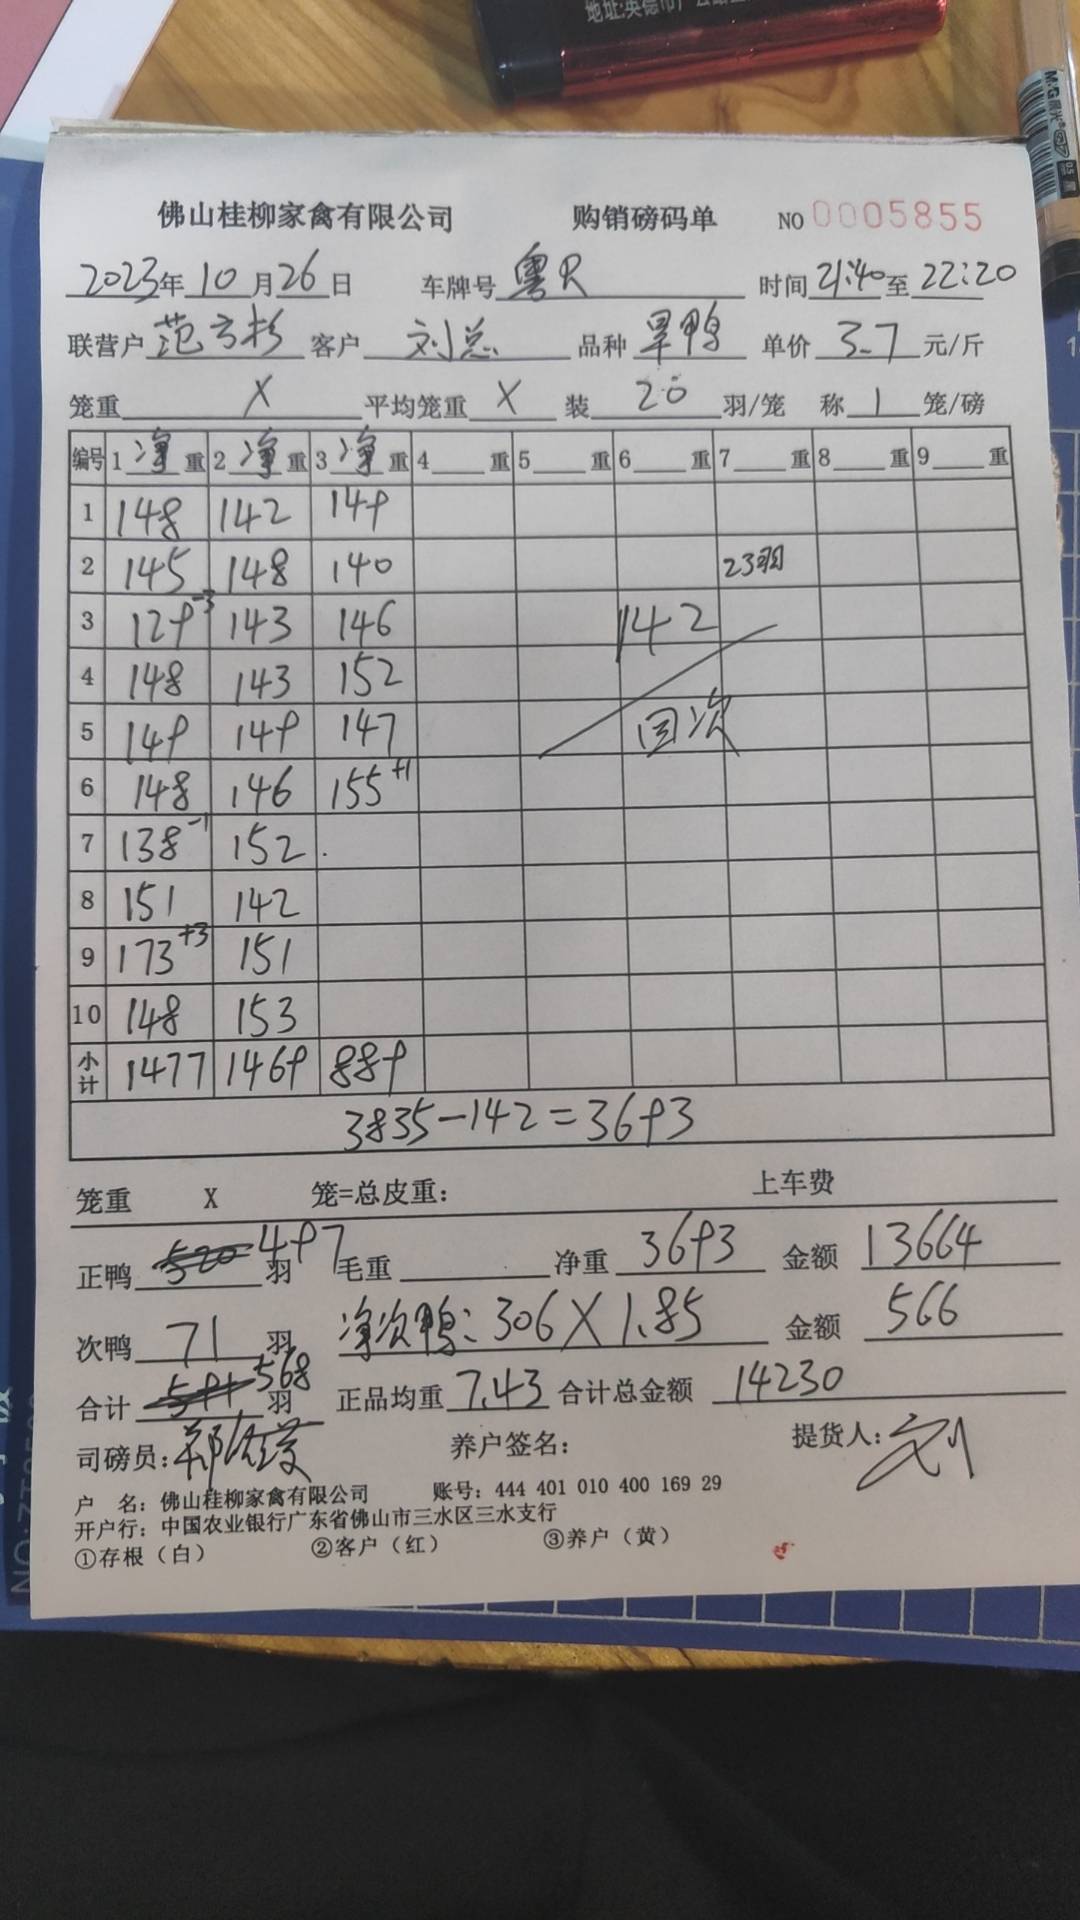 地址:英德市
M&G晨光®
0.5 黑
佛山桂柳家禽有限公司 购销磅码单 NO 0005855
2023年 10 月 26 日 车牌号 粤R 时间 21:40 至 22:20
联营户 范 客户 刘总 品种 旱鸭 单价 3.7 元/斤
笼重 X 平均笼重 X 装 20 羽/笼 称 1 笼/磅
编号 1 净 重 2 净 重 3 净 重 4 重 5 重 6 重 7 重 8 重 9 重
1 148 142 149
2 145 148 140 23羽
3 129-3 143 146 142
4 148 143 152
5 149 149 147 回次
6 148 146 155+1
7 138-1 152
8 151 142
9 173+3 151
10 148 153
小计 1477 1469 889
3835-142=3693
笼重 X 笼=总皮重: 上车费
正鸭 520 497 羽 毛重 净重 3693 金额 13664
次鸭 71 羽 净次鸭: 306 X 1.85 金额 566
合计 591 568 羽 正品均重 7.43 合计总金额 14230
司磅员: 养户签名: 提货人: 刘
户 名: 佛山桂柳家禽有限公司 账号: 444 401 010 400 169 29
开户行: 中国农业银行广东省佛山市三水区三水支行
①存根（白） ②客户（红） ③养户（黄）